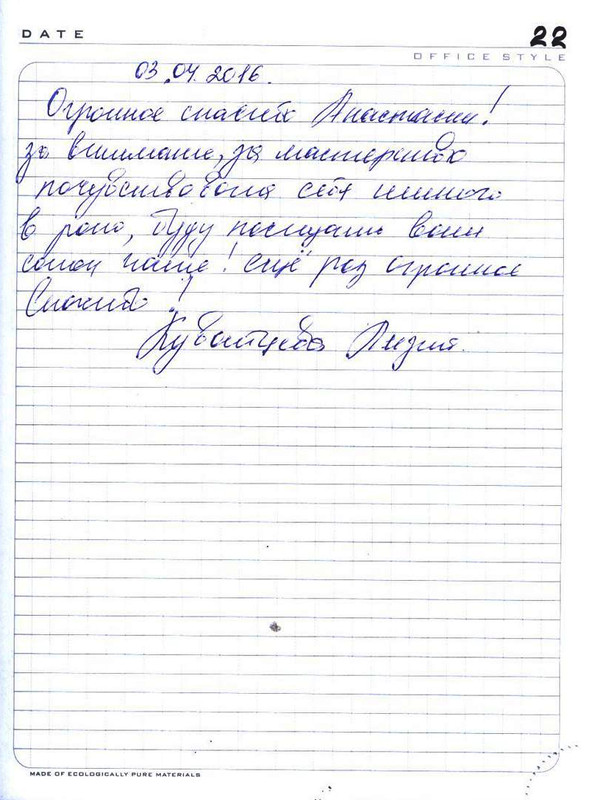 DATE
22
OFFICE STYLE
03.04.2016.
Огромное спасибо Анастасии!
за внимание, за мастерство
почувствовала себя немного
в раю, буду посещать ваш
салон чаще! ещё раз огромное
Спасибо!
MADE OF ECOLOGICALLY PURE MATERIALS